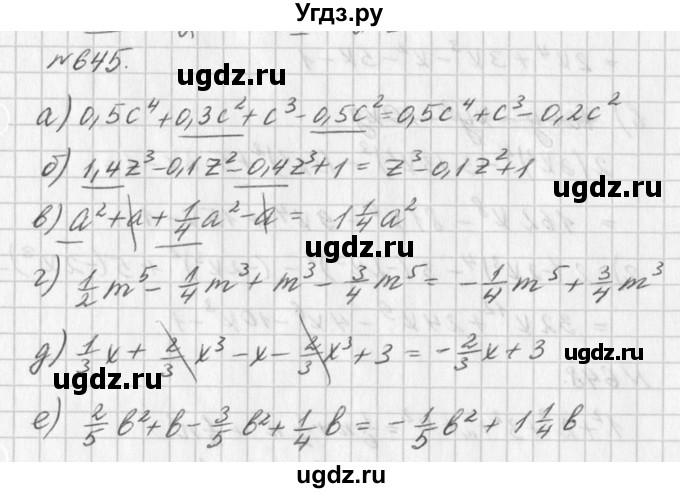 Угдз.ру
№645.
ugdz.ru
ugdz.ru
а) 0,5c⁴ + 0,3c² + c³ - 0,5c² = 0,5c⁴ + c³ - 0,2c²
б) 1,4z³ - 0,1z² - 0,4z³ + 1 = z³ - 0,1z² + 1
ugdz.ru
ugdz.ru
в) a² + a + 1/4 a² - a = 1 1/4 a²
г) 1/2 m⁵ - 1/4 m³ + m³ - 3/4 m⁵ = - 1/4 m⁵ + 3/4 m³
ugdz.ru
д) 1/3 x + 2/3 x³ - x - 2/3 x³ + 3 = - 2/3 x + 3
ugdz.ru
ugdz.ru
е) 2/5 b² + b - 3/5 b² + 1/4 b = - 1/5 b² + 1 1/4 b
ugdz.ru
ugdz.ru